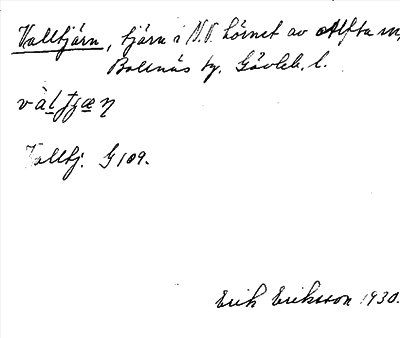 Valltjärn, tjärn i N.V. hörnet av Alfta sn,
Bollnäs tg. Gävleb. l.
Valltj. G 109.
Erik Eriksson 1930.